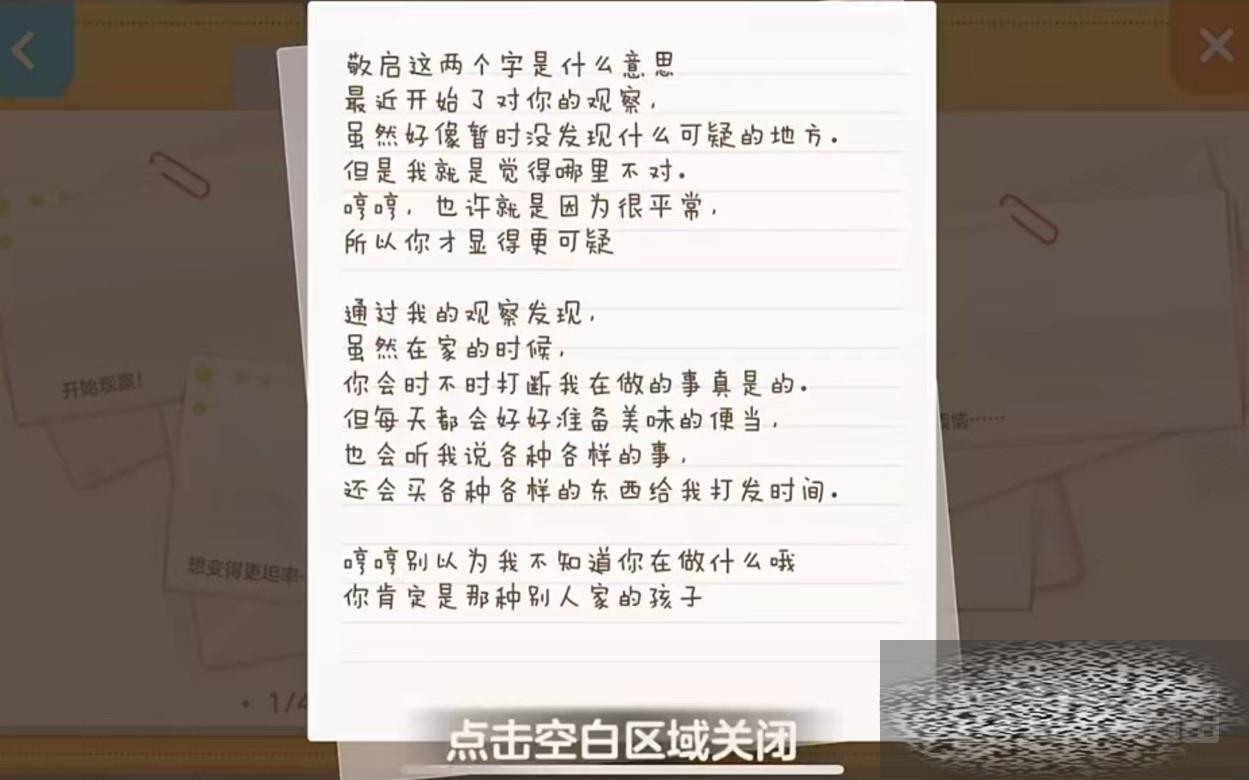 敬启这两个字是什么意思
最近开始了对你的观察，
虽然好像暂时没发现什么可疑的地方。
但是我就是觉得哪里不对。
哼哼，也许就是因为很平常，
所以你才显得更可疑
通过我的观察发现，
虽然在家的时候，
你会时不时打断我在做的事真是的。
但每天都会好好准备美味的便当，
也会听我说各种各样的事，
还会买各种各样的东西给我打发时间。
哼哼别以为我不知道你在做什么哦
你肯定是那种别人家的孩子
开始观察！
想变得更坦率
恼……
1/4
点击空白区域关闭